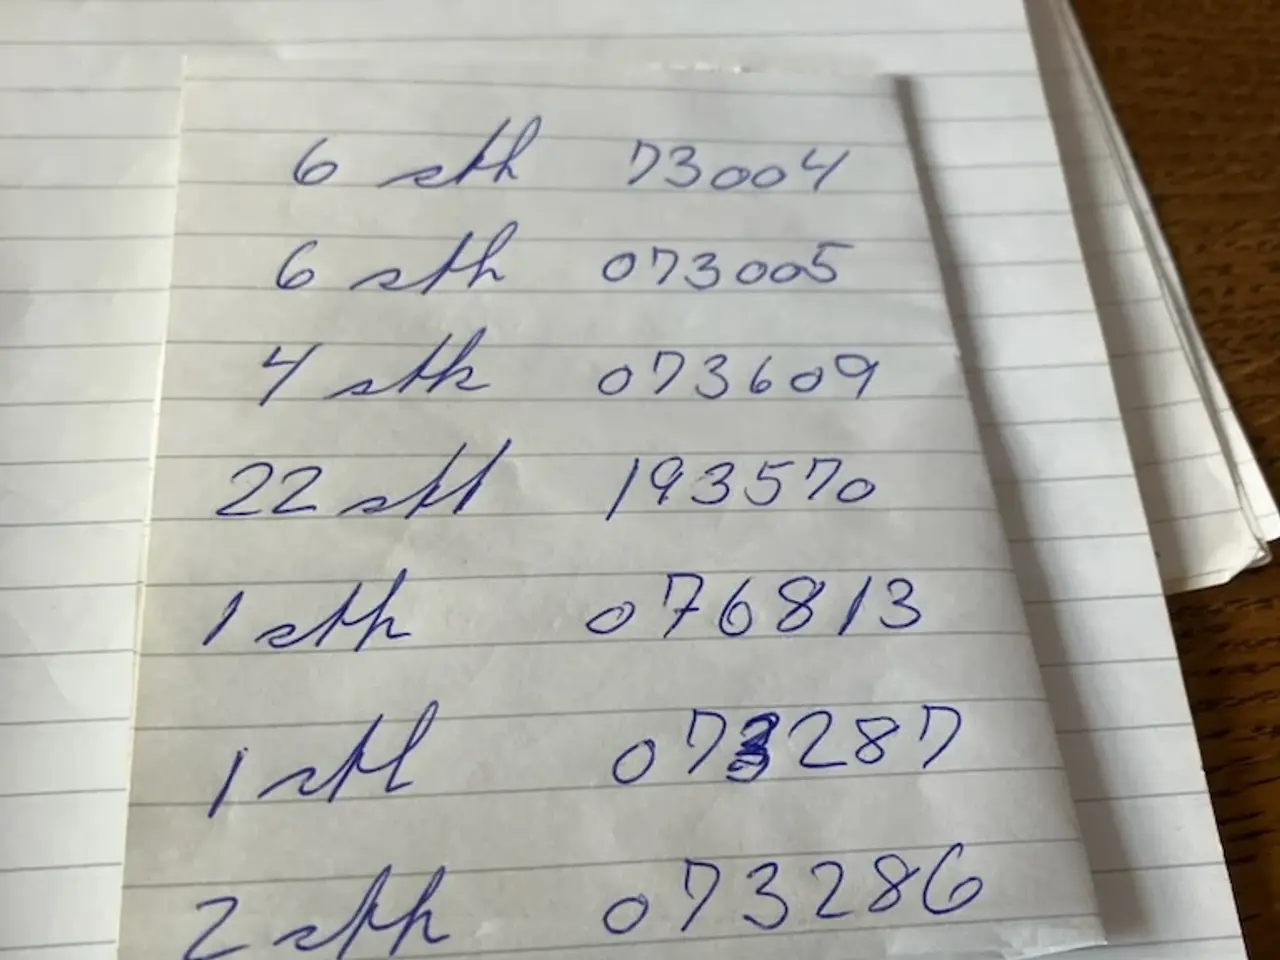 6 stk 73004
6 stk 073005
4 stk 073609
22 stk 193570
1 stk 076813
1 stk 073287
2 stk 073286